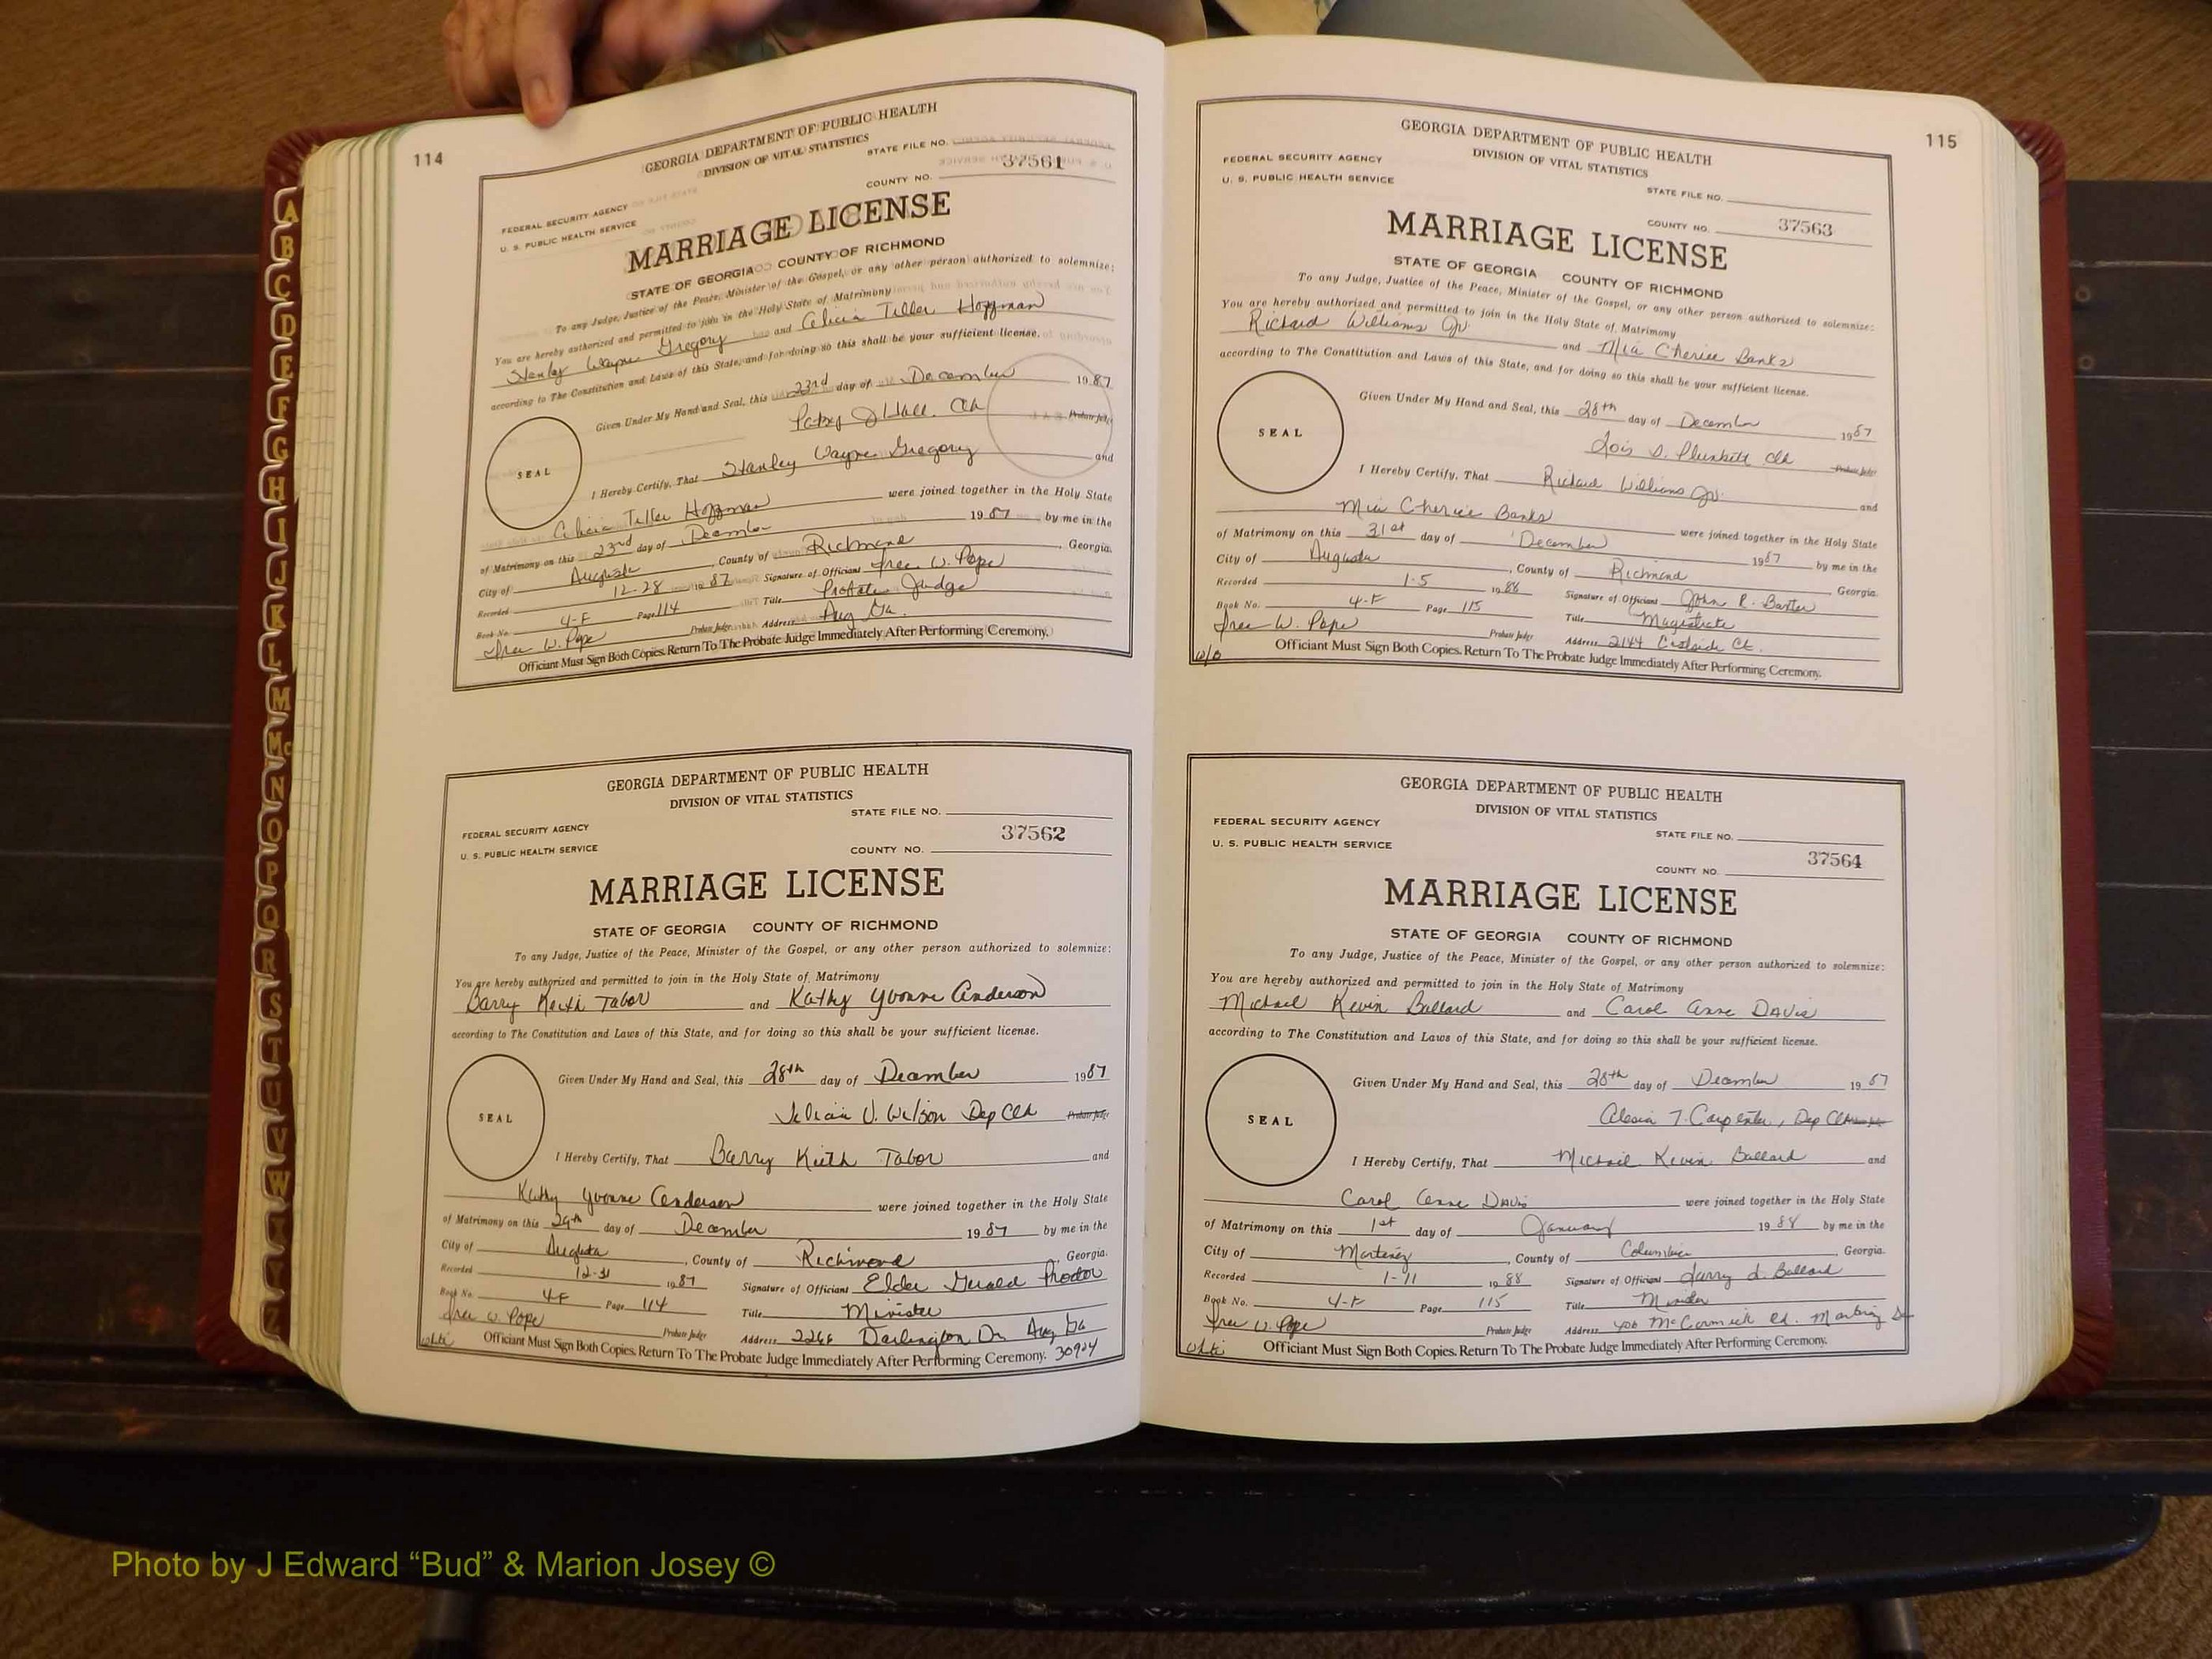 114
GEORGIA DEPARTMENT OF PUBLIC HEALTH
DIVISION OF VITAL STATISTICS
STATE FILE NO.
37561
COUNTY NO.
FEDERAL SECURITY AGENCY
U. S. PUBLIC HEALTH SERVICE
MARRIAGE LICENSE
STATE OF GEORGIA COUNTY OF RICHMOND
To any Judge, Justice of the Peace, Minister of the Gospel, or any other person authorized to solemnize:
You are hereby authorized and permitted to join in the Holy State of Matrimony
Stanley Wayne Gregory and Alicia Teller Hoffman
according to The Constitution and Laws of this State, and for doing so this shall be your sufficient license.
Given Under My Hand and Seal, this 23rd day of December 1987
Patsy J Hall Clk Probate Judge
SEAL
I Hereby Certify, That Stanley Wayne Gregory and
Alicia Teller Hoffman were joined together in the Holy State
of Matrimony on this 23rd day of December 1987 by me in the
City of Augusta, County of Richmond, Georgia.
Recorded 12-28 1987 Signature of Officiant W. Pope
Book No. 4-F Page 114 Title Probate Judge
W. Pope Probate Judge Address Aug Ga.
Officiant Must Sign Both Copies. Return To The Probate Judge Immediately After Performing Ceremony.
GEORGIA DEPARTMENT OF PUBLIC HEALTH
DIVISION OF VITAL STATISTICS
STATE FILE NO.
FEDERAL SECURITY AGENCY
37562
U. S. PUBLIC HEALTH SERVICE
COUNTY NO.
MARRIAGE LICENSE
STATE OF GEORGIA COUNTY OF RICHMOND
To any Judge, Justice of the Peace, Minister of the Gospel, or any other person authorized to solemnize:
You are hereby authorized and permitted to join in the Holy State of Matrimony
Barry Keith Tabor and Kathy Yvonne Anderson
according to The Constitution and Laws of this State, and for doing so this shall be your sufficient license.
Given Under My Hand and Seal, this 28th day of December 1987
V. Wilson Dep Clk Probate Judge
SEAL
I Hereby Certify, That Barry Keith Tabor and
Kathy Yvonne Anderson were joined together in the Holy State
of Matrimony on this 29th day of December 1987 by me in the
City of Augusta, County of Richmond, Georgia.
Recorded 12-31 1987 Signature of Officiant Elder Gerald Proctor
Book No. 4-F Page 114 Title Minister
W. Pope Probate Judge Address 2266 Darlington Dr Aug Ga
Officiant Must Sign Both Copies. Return To The Probate Judge Immediately After Performing Ceremony. 30904
115
GEORGIA DEPARTMENT OF PUBLIC HEALTH
DIVISION OF VITAL STATISTICS
FEDERAL SECURITY AGENCY
U. S. PUBLIC HEALTH SERVICE
STATE FILE NO.
COUNTY NO. 37563
MARRIAGE LICENSE
STATE OF GEORGIA COUNTY OF RICHMOND
To any Judge, Justice of the Peace, Minister of the Gospel, or any other person authorized to solemnize:
You are hereby authorized and permitted to join in the Holy State of Matrimony
Richard Williams Jr. and Mia Cherice Banks
according to The Constitution and Laws of this State, and for doing so this shall be your sufficient license.
Given Under My Hand and Seal, this 28th day of December 1987
Lois D. Plunkett Clk Probate Judge
SEAL
I Hereby Certify, That Richard Williams Jr. and
Mia Cherice Banks were joined together in the Holy State
of Matrimony on this 31st day of December 1987 by me in the
City of Augusta, County of Richmond, Georgia.
Recorded 1-5 1988 Signature of Officiant John R. Baxter
Book No. 4-F Page 115 Title Magistrate
W. Pope Probate Judge Address 2144 Ct.
Officiant Must Sign Both Copies. Return To The Probate Judge Immediately After Performing Ceremony.
GEORGIA DEPARTMENT OF PUBLIC HEALTH
DIVISION OF VITAL STATISTICS
FEDERAL SECURITY AGENCY
STATE FILE NO.
U. S. PUBLIC HEALTH SERVICE
37564
COUNTY NO.
MARRIAGE LICENSE
STATE OF GEORGIA COUNTY OF RICHMOND
To any Judge, Justice of the Peace, Minister of the Gospel, or any other person authorized to solemnize:
You are hereby authorized and permitted to join in the Holy State of Matrimony
Michael Kevin Ballard and Carol Anne Davis
according to The Constitution and Laws of this State, and for doing so this shall be your sufficient license.
Given Under My Hand and Seal, this 28th day of December 1987
Alesia T. Carpenter, Dep Clk
SEAL
I Hereby Certify, That Michael Kevin Ballard and
Carol Anne Davis were joined together in the Holy State
of Matrimony on this 1st day of January 1988 by me in the
City of Martinez, County of Columbia, Georgia.
Recorded 1-11 1988 Signature of Officiant Larry L. Ballard
Book No. 4-F Page 115 Title Minister
W. Pope Probate Judge Address 406 McCormick Rd. Martinez Ga
Officiant Must Sign Both Copies. Return To The Probate Judge Immediately After Performing Ceremony.
A
B
C
D
E
F
G
H
I
J
K
L
M
Mc
N
O
P
Q
R
S
T
U
V
W
Photo by J Edward “Bud” & Marion Josey ©